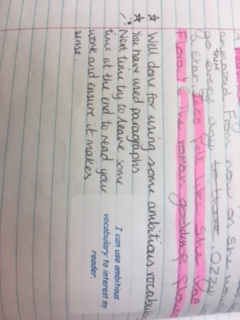 around. From now on she
them
go every day to there. Ozzy
a star face felt like she
Flora the roman goddess
☆ Well done for using some ambitious vocabul
☆ You have used paragraphs
Next time try to leave some
time at the end to read your
work and ensure it makes
sense.
I can use ambitious
vocabulary to interest my
reader.